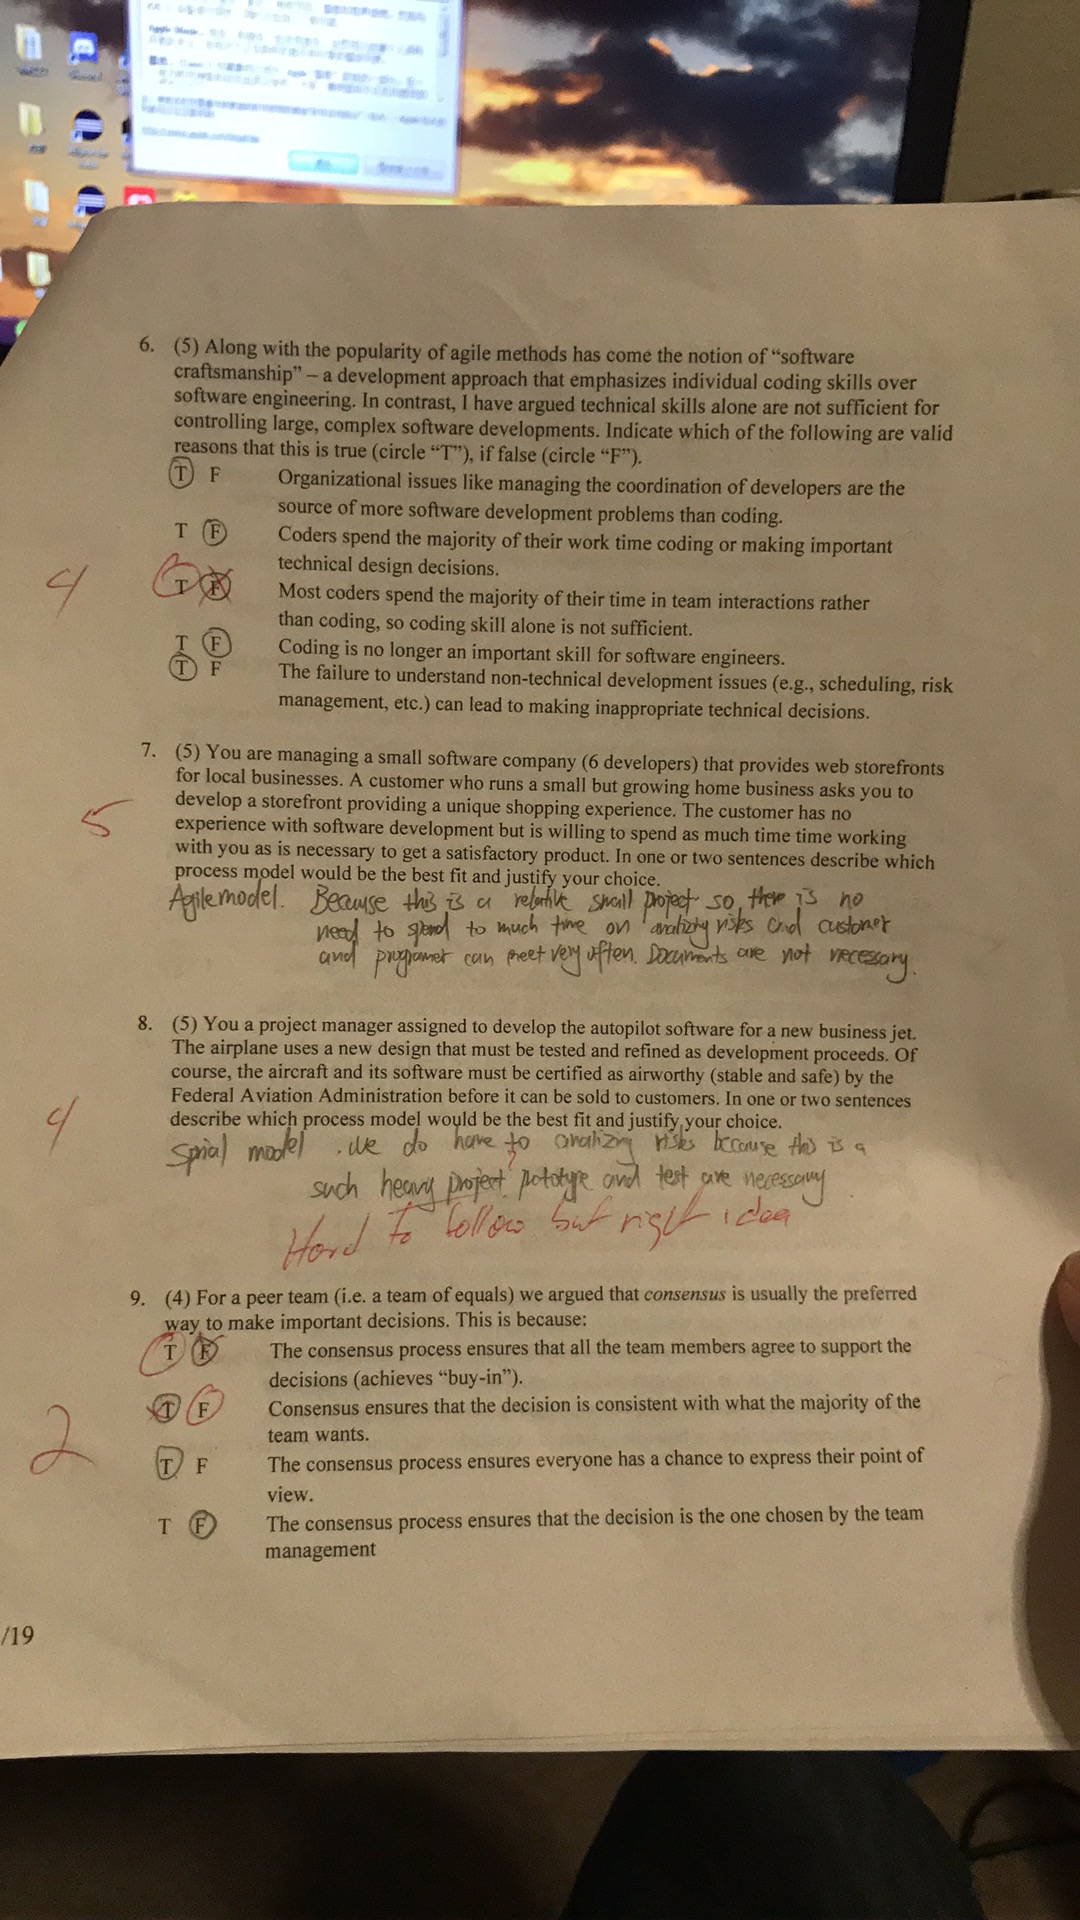 6. (5) Along with the popularity of agile methods has come the notion of “software
craftsmanship” – a development approach that emphasizes individual coding skills over
software engineering. In contrast, I have argued technical skills alone are not sufficient for
controlling large, complex software developments. Indicate which of the following are valid
reasons that this is true (circle “T”), if false (circle “F”).
T F Organizational issues like managing the coordination of developers are the
source of more software development problems than coding.
T F Coders spend the majority of their work time coding or making important
technical design decisions.
4
T F Most coders spend the majority of their time in team interactions rather
than coding, so coding skill alone is not sufficient.
T F Coding is no longer an important skill for software engineers.
T F The failure to understand non-technical development issues (e.g., scheduling, risk
management, etc.) can lead to making inappropriate technical decisions.
7. (5) You are managing a small software company (6 developers) that provides web storefronts
for local businesses. A customer who runs a small but growing home business asks you to
develop a storefront providing a unique shopping experience. The customer has no
5
experience with software development but is willing to spend as much time time working
with you as is necessary to get a satisfactory product. In one or two sentences describe which
process model would be the best fit and justify your choice.
Agile model. Because this is a relative small project so, there is no
need to spend to much time on risks and customer
and programer can meet very often. Documents are not necessary.
8. (5) You a project manager assigned to develop the autopilot software for a new business jet.
The airplane uses a new design that must be tested and refined as development proceeds. Of
course, the aircraft and its software must be certified as airworthy (stable and safe) by the
Federal Aviation Administration before it can be sold to customers. In one or two sentences
4
describe which process model would be the best fit and justify your choice.
Sprial model. we do have to analizing risks because this is a
such heavy project pototype and test are necessary
Hard to follow but right idea
9. (4) For a peer team (i.e. a team of equals) we argued that consensus is usually the preferred
way to make important decisions. This is because:
T F The consensus process ensures that all the team members agree to support the
decisions (achieves “buy-in”).
T F Consensus ensures that the decision is consistent with what the majority of the
team wants.
2
T F The consensus process ensures everyone has a chance to express their point of
view.
T F The consensus process ensures that the decision is the one chosen by the team
management
/19